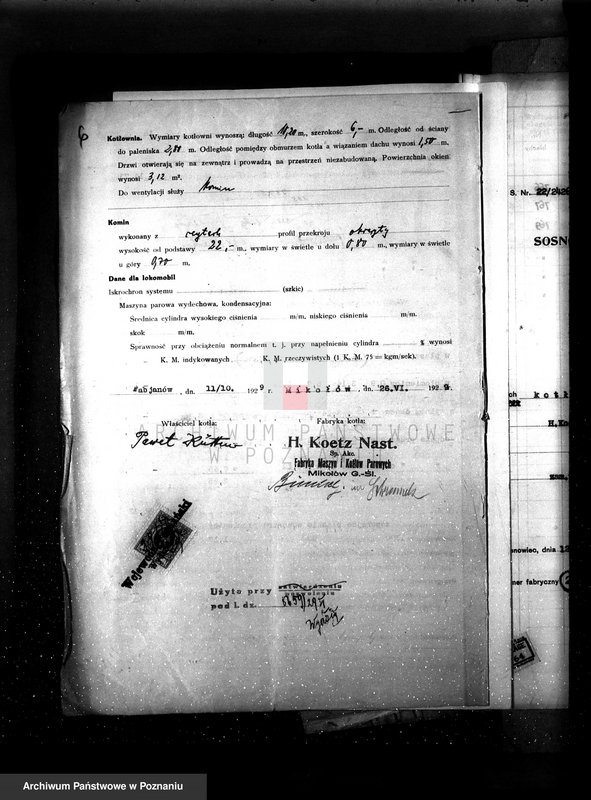 6
Kotłownia. Wymiary kotłowni wynoszą: długość 11,20 m., szerokość 6,— m. Odległość od ściany
do paleniska 2,80 m. Odległość pomiędzy obmurzem kotła a wiązaniem dachu wynosi 1,50 m.
Drzwi otwierają się na zewnątrz i prowadzą na przestrzeń niezabudowaną. Powierzchnia okien
wynosi 3,12 m².
Do wentylacji służy komin
Komin
wykonany z cegieł profil przekroju okrągły
wysokość od podstawy 22,— m., wymiary w świetle u dołu 0,80 m., wymiary w świetle
u góry 0,70 m.
Dane dla lokomobil
Iskrochron systemu (szkic)
Maszyna parowa wydechowa, kondensacyjna:
Średnica cylindra wysokiego ciśnienia m/m. niskiego ciśnienia m/m.
skok m/m.
Sprawność przy obciążeniu normalnem t. j. przy napełnieniu cylindra % wynosi
K. M. indykowanych K. M. rzeczywistych (1 K. M. 75 = kgm/sek).
, dn. 11/10. 1929 r. Mikołów, dn. 26.VI. 1929.
Właściciel kotła:
Fabryka kotła:
Paweł
H. Koetz Nast.
Sp. Akc.
Fabryka Maszyn i Kotłów Parowych
Mikołów G.-Śl.
ARCHIWUM PAŃSTWOWE
W POZNANIU
Użyto przy zatwierdzenie
pozwolenia
pod l. dz. 5659/29
S. Nr. 22/2428
SOSNO
kotł
H.Ko
nowiec, dnia 12
ner fabryczny
Archiwum Państwowe w Poznaniu